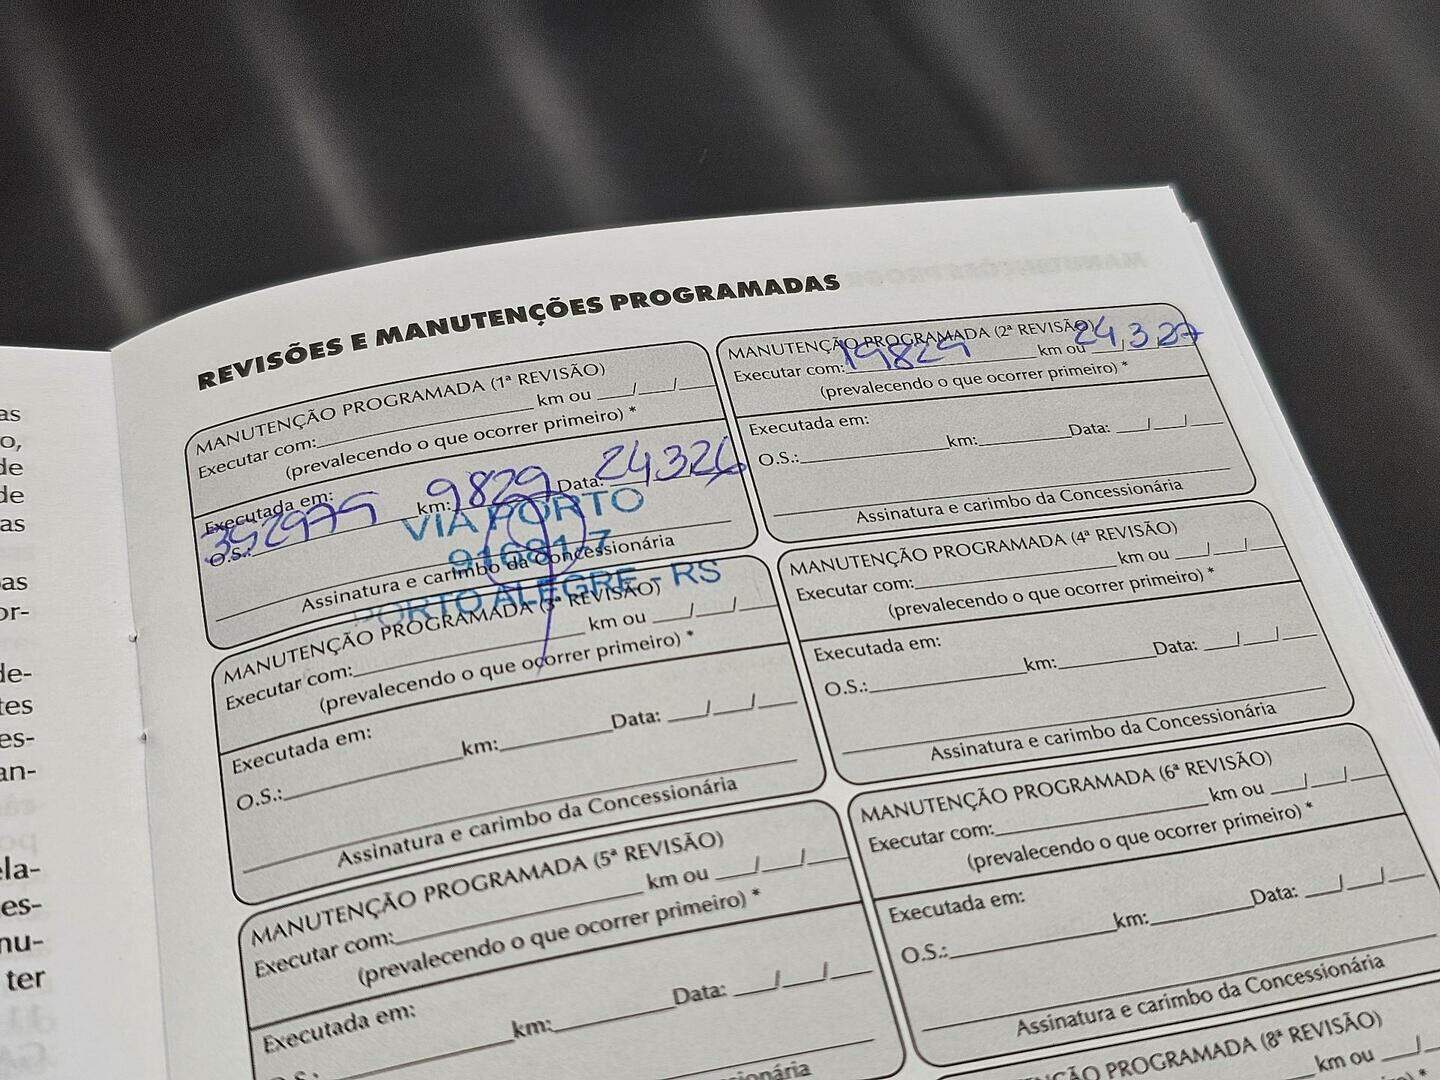 as
o,
de
de
as
as
or-
de-
tes
es-
an-
ela-
es-
nu-
ter
REVISÕES E MANUTENÇÕES PROGRAMADAS
MANUTENÇÃO PROGRAMADA (1ª REVISÃO)
Executar com:__________ km ou ___/___/___
(prevalecendo o que ocorrer primeiro) *
Executada em:
O.S.: 352979 km: 9829 Data: 24,3,26
VIA PORTO
916817
PORTO ALEGRE - RS
Assinatura e carimbo da Concessionária
MANUTENÇÃO PROGRAMADA (2ª REVISÃO)
Executar com: 19829 km ou 24,3,27
(prevalecendo o que ocorrer primeiro) *
Executada em:
O.S.:__________km:__________Data: ___/___/___
Assinatura e carimbo da Concessionária
MANUTENÇÃO PROGRAMADA (3ª REVISÃO)
Executar com:__________ km ou ___/___/___
(prevalecendo o que ocorrer primeiro) *
Executada em:
O.S.:__________km:__________Data: ___/___/___
Assinatura e carimbo da Concessionária
MANUTENÇÃO PROGRAMADA (4ª REVISÃO)
Executar com:__________ km ou ___/___/___
(prevalecendo o que ocorrer primeiro) *
Executada em:
O.S.:__________km:__________Data: ___/___/___
Assinatura e carimbo da Concessionária
MANUTENÇÃO PROGRAMADA (5ª REVISÃO)
Executar com:__________ km ou ___/___/___
(prevalecendo o que ocorrer primeiro) *
Executada em:
km:__________Data: ___/___/___
MANUTENÇÃO PROGRAMADA (6ª REVISÃO)
Executar com:__________ km ou ___/___/___
(prevalecendo o que ocorrer primeiro) *
Executada em:
O.S.:__________km:__________Data: ___/___/___
Assinatura e carimbo da Concessionária
ÇÃO PROGRAMADA (8ª REVISÃO)
km ou ___/